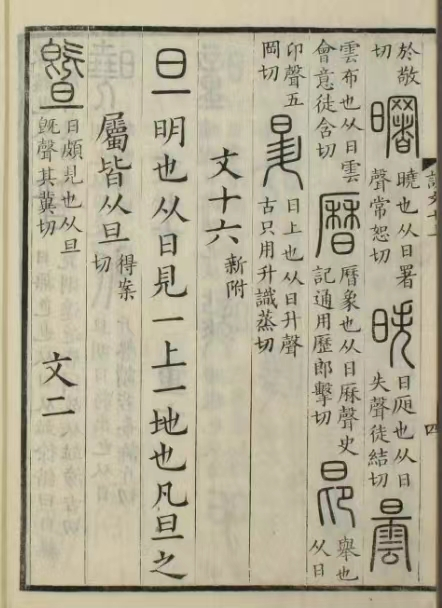 四
於敬切曙曉也从日署聲常恕切昳日昃也从日失聲徒結切曇
雲布也从日雲會意徒含切曆曆象也从日厤聲史記通用歷郎擊切昂舉也从日
卬聲五岡切昇日上也从日升聲古只用升識蒸切
文十六新附
旦明也从日見一上一地也凡旦之
屬皆从旦得案切
曁日頗見也从旦旣聲其冀切文二